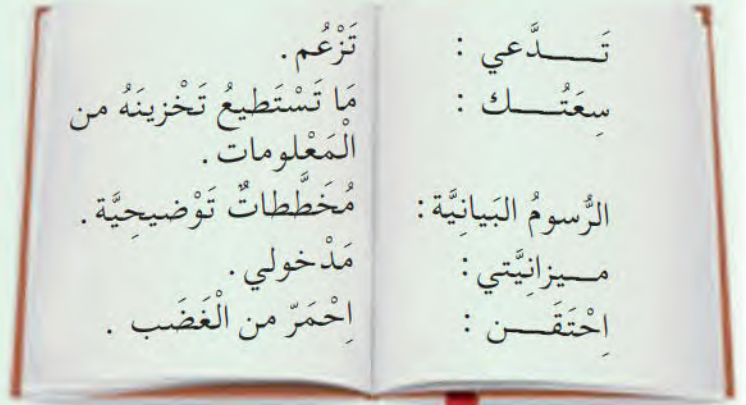 تَـــدَّعي : تَزْعُم.
سِعَتُـــك : مَا تَسْتَطيعُ تَخْزينَهُ من
الْمَعْلومات.
الرُّسومُ البَيانِيَّة: مُخَطَّطاتٌ تَوْضيحِيَّة.
مـــيزانِيَّتي: مَدْخولي.
اِحْتَقَـــن : اِحْمَرّ من الْغَضَب .